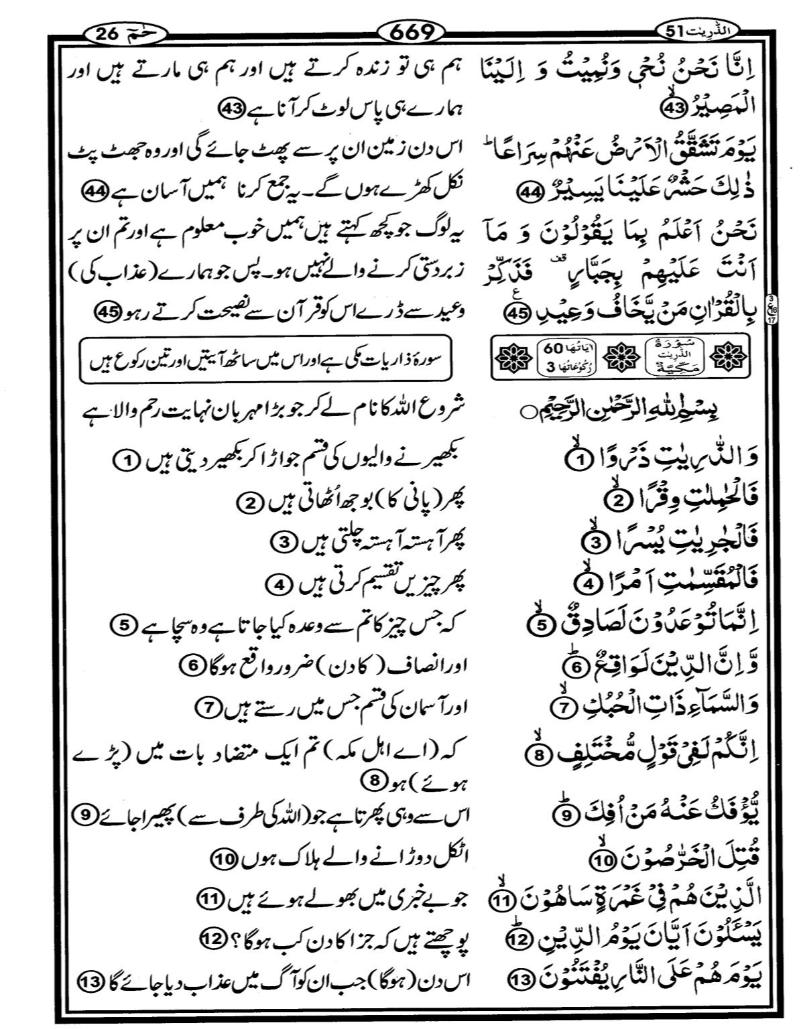 الذّٰرِیٰت 51
669
حٰمٓ 26
اِنَّا نَحْنُ نُحْیٖ وَنُمِیْتُ وَ اِلَیْنَا
الْمَصِیْرُ ﴿43﴾
یَوْمَ تَشَقَّقُ الْاَرْضُ عَنْهُمْ سِرَاعًا ؕ
ذٰلِكَ حَشْرٌ عَلَیْنَا یَسِیْرٌ ﴿44﴾
نَحْنُ اَعْلَمُ بِمَا یَقُوْلُوْنَ وَ مَاۤ
اَنْتَ عَلَیْهِمْ بِجَبَّارٍ ۫ فَذَكِّرْ
بِالْقُرْاٰنِ مَنْ یَّخَافُ وَعِیْدِ ﴿45﴾
ہم ہی تو زندہ کرتے ہیں اور ہم ہی مارتے ہیں اور
ہمارے ہی پاس لوٹ کر آنا ہے ﴿43﴾
اس دن زمین ان پر سے پھٹ جائے گی اور وہ جھٹ پٹ
نکل کھڑے ہوں گے۔ یہ جمع کرنا ہمیں آسان ہے ﴿44﴾
یہ لوگ جو کچھ کہتے ہیں ہمیں خوب معلوم ہے اور تم ان پر
زبردستی کرنے والے نہیں ہو۔ پس جو ہمارے (عذاب کی)
وعید سے ڈرے اس کو قرآن سے نصیحت کرتے رہو ﴿45﴾
سُوْرَةُ الذّٰرِیٰت مَكِّیَّةٌ
اٰیَاتُهَا 60
رُكُوْعَاتُهَا 3
سورۂ ذاریات مکی ہے اور اس میں ساٹھ آیتیں اور تین رکوع ہیں
بِسْمِ اللّٰهِ الرَّحْمٰنِ الرَّحِیْمِ ○
وَالذّٰرِیٰتِ ذَرْوًا ۙ﴿1﴾
فَالْحٰمِلٰتِ وِقْرًا ۙ﴿2﴾
فَالْجٰرِیٰتِ یُسْرًا ۙ﴿3﴾
فَالْمُقَسِّمٰتِ اَمْرًا ۙ﴿4﴾
اِنَّمَا تُوْعَدُوْنَ لَصَادِقٌ ۙ﴿5﴾
وَّاِنَّ الدِّیْنَ لَوَاقِعٌ ؕ﴿6﴾
وَالسَّمَآءِ ذَاتِ الْحُبُكِ ۙ﴿7﴾
اِنَّكُمْ لَفِیْ قَوْلٍ مُّخْتَلِفٍ ۙ﴿8﴾
یُّؤْفَكُ عَنْهُ مَنْ اُفِكَ ؕ﴿9﴾
قُتِلَ الْخَرّٰصُوْنَ ۙ﴿10﴾
الَّذِیْنَ هُمْ فِیْ غَمْرَةٍ سَاهُوْنَ ۙ﴿11﴾
یَسْـَٔلُوْنَ اَیَّانَ یَوْمُ الدِّیْنِ ؕ﴿12﴾
یَوْمَ هُمْ عَلَی النَّارِ یُفْتَنُوْنَ ﴿13﴾
شروع اللہ کا نام لے کر جو بڑا مہربان نہایت رحم والا ہے
بکھیرنے والیوں کی قسم جو اڑا کر بکھیر دیتی ہیں ﴿1﴾
پھر (پانی کا) بوجھ اُٹھاتی ہیں ﴿2﴾
پھر آہستہ آہستہ چلتی ہیں ﴿3﴾
پھر چیزیں تقسیم کرتی ہیں ﴿4﴾
کہ جس چیز کا تم سے وعدہ کیا جاتا ہے وہ سچا ہے ﴿5﴾
اور انصاف (کا دن) ضرور واقع ہوگا ﴿6﴾
اور آسمان کی قسم جس میں رستے ہیں ﴿7﴾
کہ (اے اہل مکہ) تم ایک متضاد بات میں (پڑے
ہوئے) ہو ﴿8﴾
اس سے وہی پھرتا ہے جو (اللہ کی طرف سے) پھیرا جائے ﴿9﴾
اٹکل دوڑانے والے ہلاک ہوں ﴿10﴾
جو بے خبری میں بھولے ہوئے ہیں ﴿11﴾
پوچھتے ہیں کہ جزا کا دن کب ہوگا؟ ﴿12﴾
اس دن (ہوگا) جب ان کو آگ میں عذاب دیا جائے گا ﴿13﴾